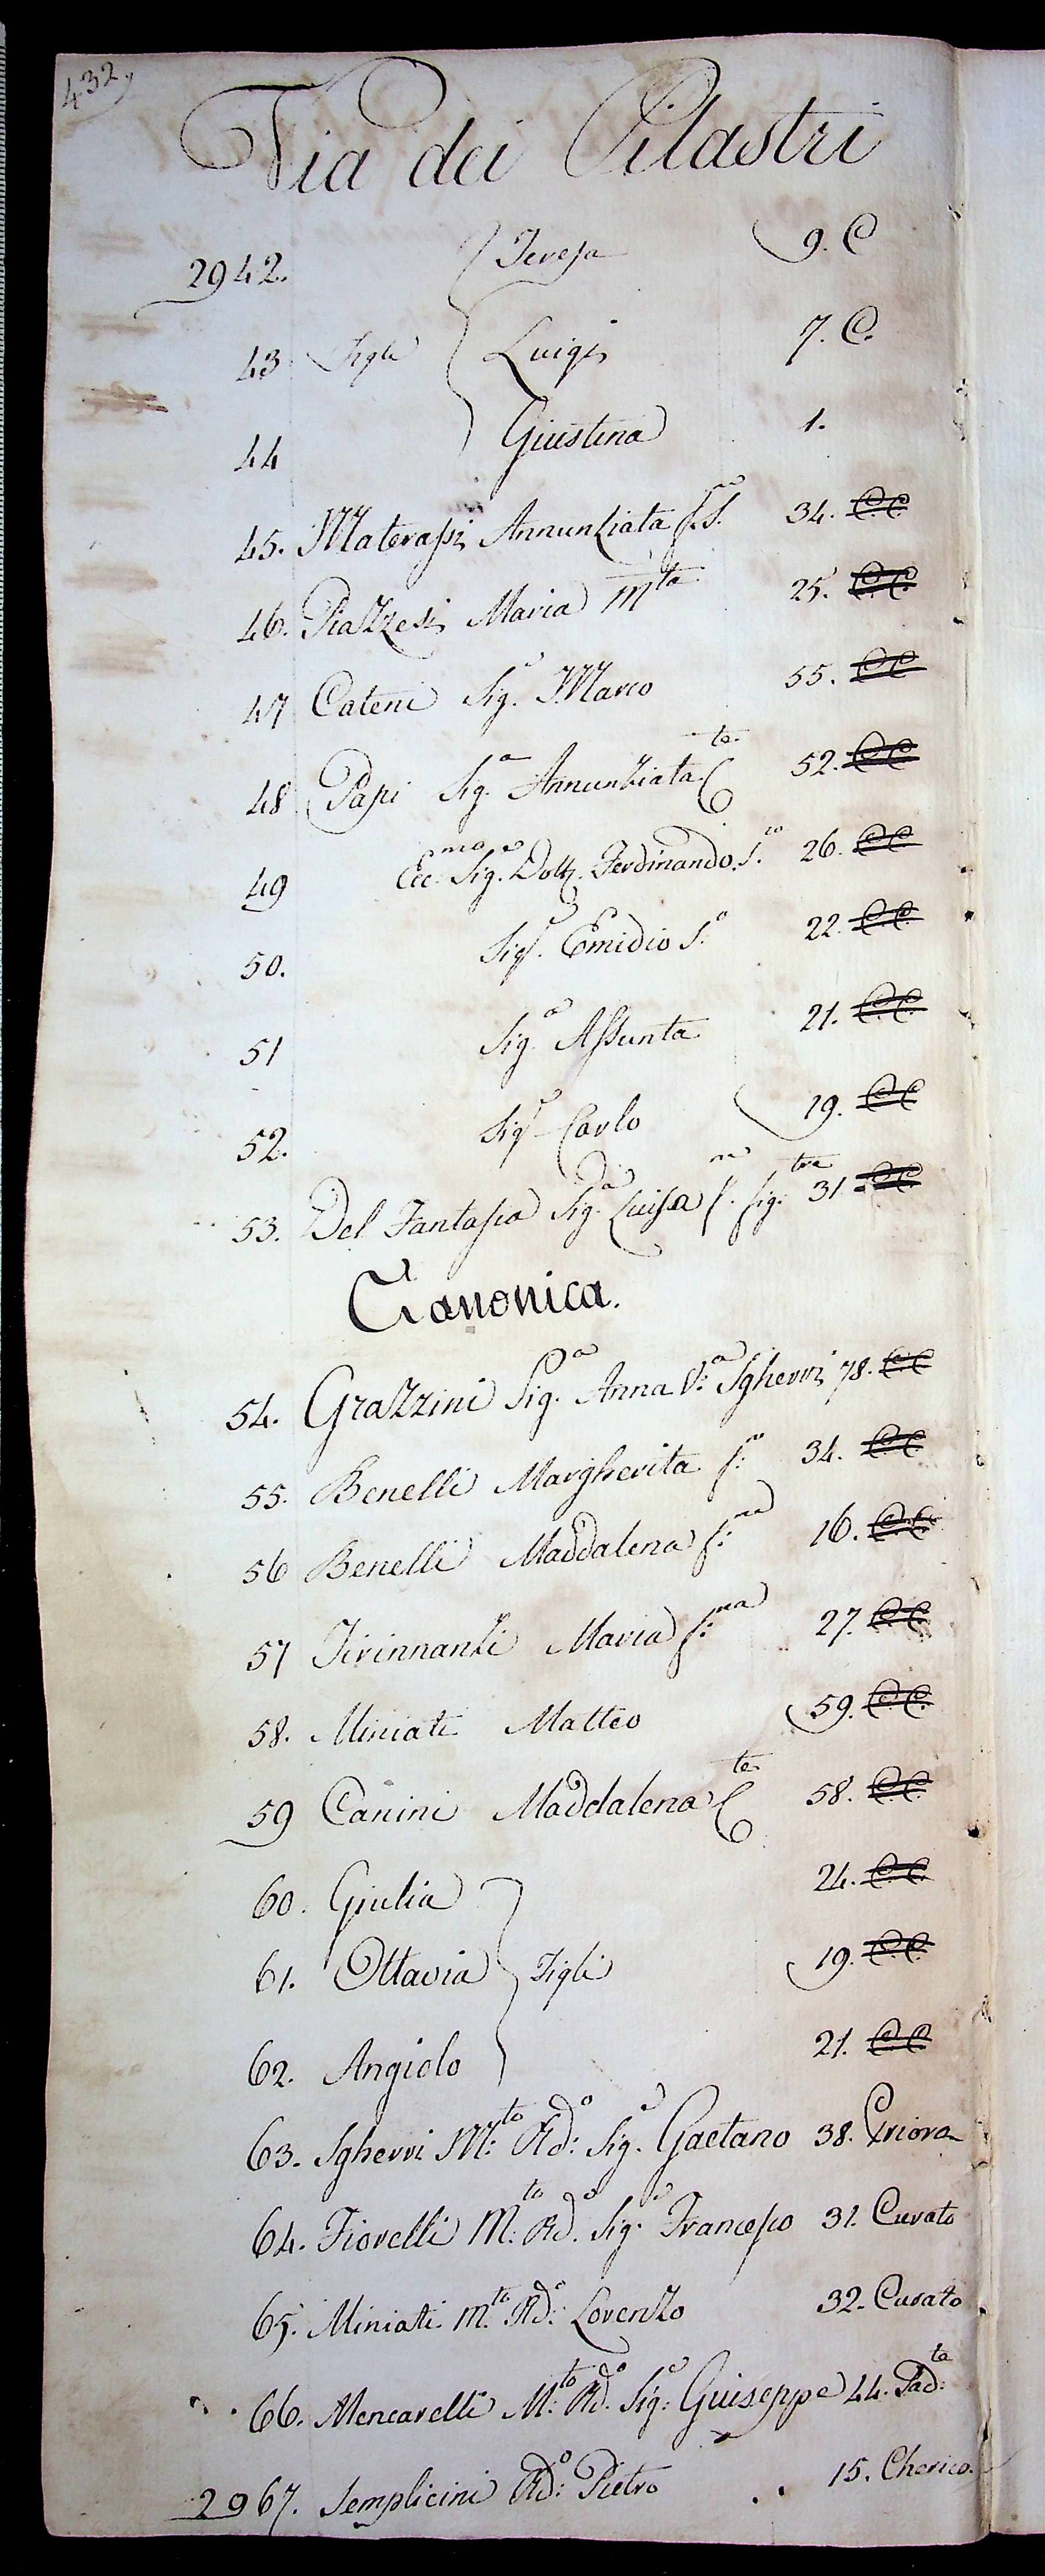 432.
Via dei Pilastri
2942. Teresa 9. C
43 Figli Luigi 7. C.
44 Giustina 1.
45. Materassi Annunziata 34. C.C.
46. Piazzesi Maria M.ta 25. C.C.
47 Cateni Sig.r Marco 55. C.C.
48 Papi Sig.a Annunziata C.te 52. C.C.
49 Ecc.mo Sig.r Dott. Ferdinando S.to 26. C.C.
50. Sig.r Emidio S.o 22. C.C.
51 Sig.a Assunta 21. C.C.
52. Sig.r Carlo 19. C.C.
53. Del Fantasia Sig.a Luisa 31. C.C.
Canonica.
54. Grazzini Sig.a Anna V.a Sgherri 78. C.C.
55. Benelli Margherita 34. C.C.
56 Benelli Maddalena f:na 16. C.C.
57 Tirinnanzi Maria f:na 27. C.C.
58. Miniati Matteo 59. C.C.
59 Canini Maddalena C.te 58. C.C.
60. Giulia 24. C.C.
61. Ottavia Figli 19. C.C.
62. Angiolo 21. C.C.
63. Sgherri M:to Rd:o Sig.r Gaetano 38. Priore
64. Fiorelli M.to Rd.o Sig.r Francesco 31. Curato
65. Miniati M.to Rd:o Lorenzo 32. Curato
66. Mencarelli M:to Rd.o Sig:r Guiseppe 44. Sad:ta
2967. Semplicini Rd:o Pietro 15. Cherico.